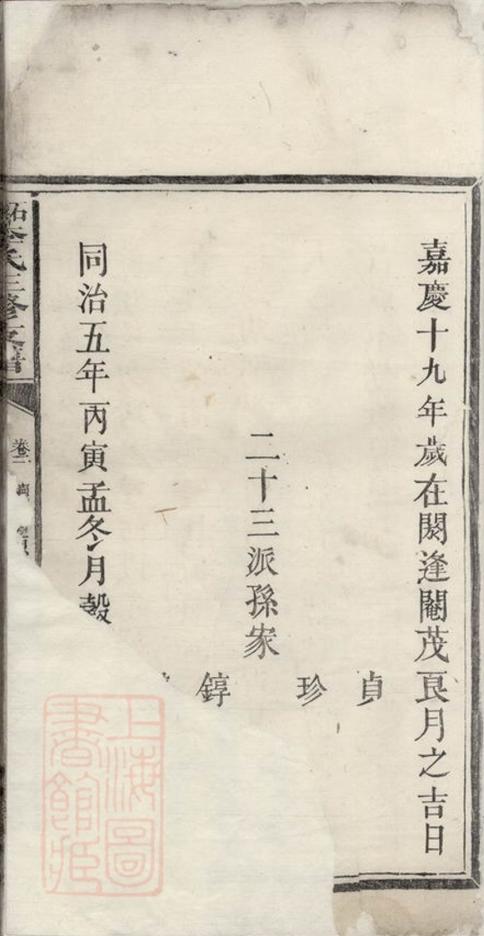 嘉慶十九年歲在閼逢閹茂良月之吉日
二十三派孫家
貞
珍
錞
同治五年丙寅孟冬月穀
石
李氏三修支譜
卷二
上海圖
書館藏